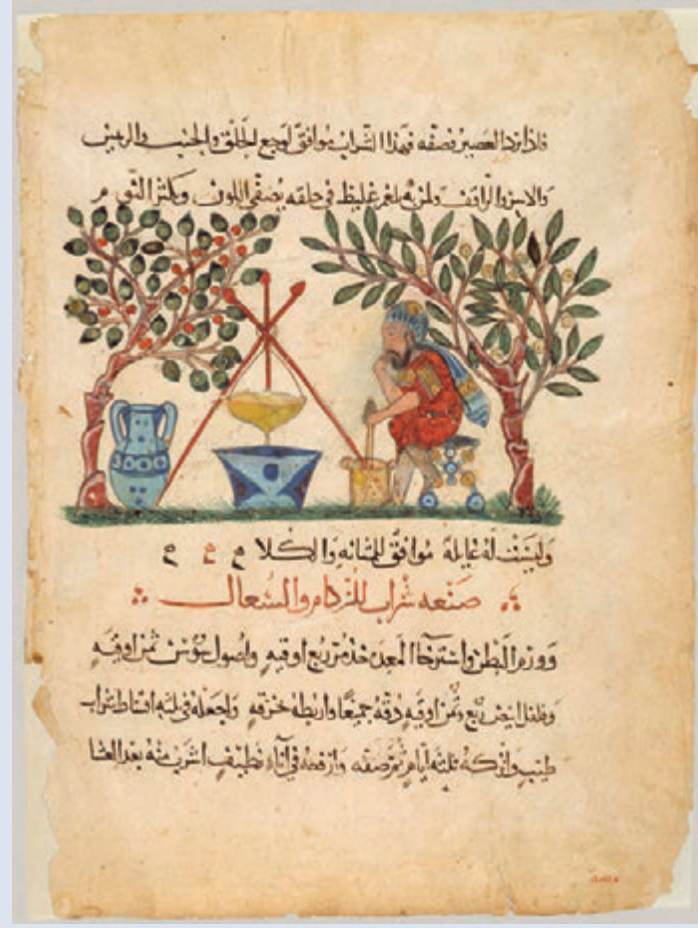 فاذا برد العصير فصفه فهذا الشراب موافق لوجع الحلق والجنب والريش
والاسر والراقف ولمن به بلغم غليظ في حلقه يصفي اللون ويكثر النوم
وليست له غايلة موافق للمثانه والكلا ح ح ح
صنعه شراب للزكام والسعال
وورم البطن واسترخا المعده خذ مر ربع اوقيه واصول سوسن ثمن اوقيه
وفلفل ابيض ربع وثمن اوقيه دقه جميعا واربطه خرقه واجعله في ثلثه اقساط شراب
طيب واتركه ثلثه ايام ثم صفه وارفعه في اناء نظيف اشرب منه بعد العشا